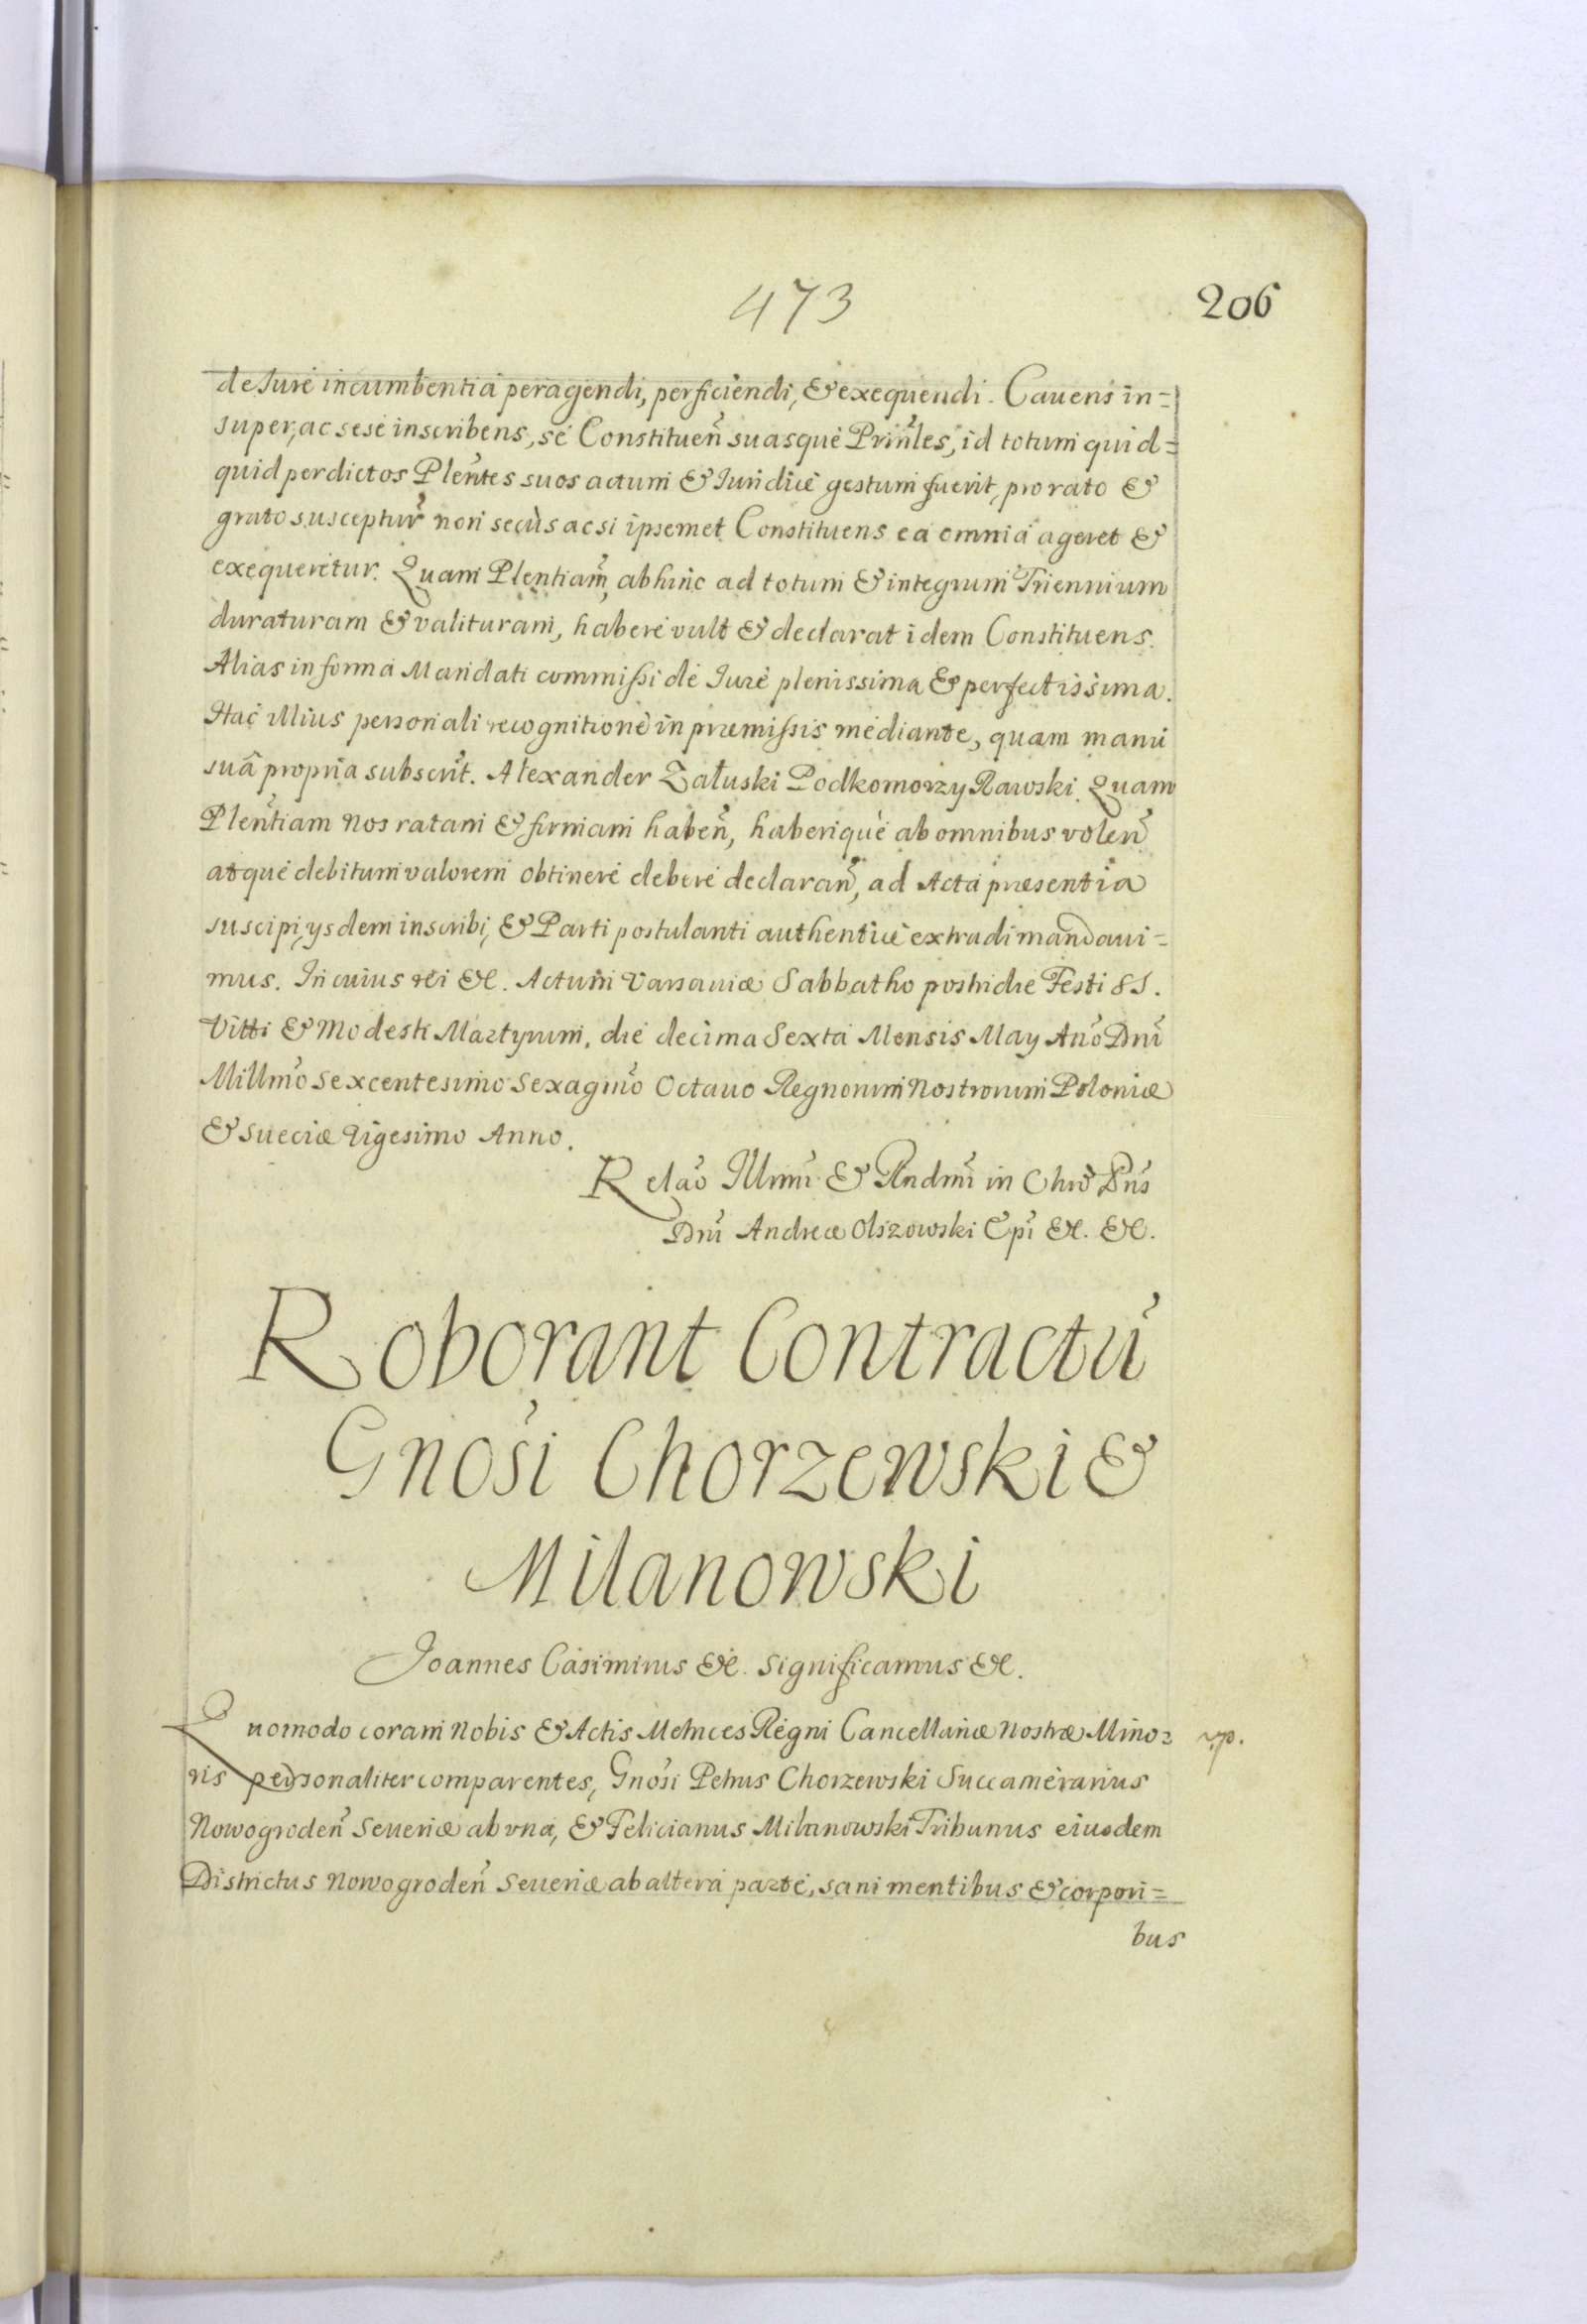 473
206
de Iure incumbentia peragendi, perficiendi, & exequendi. Cauens in=
super, ac sese inscribens, se Constituen̄ suasque Prin̄les, id totum quid=
quid per dictos Plen̄tes suos actum & Iuridice gestum fuerit, pro rato &
grato susceptur̄ non secùs ac si ipsemet Constituens ea omnia ageret &
exequeretur. Quam Plentiam̄, abhinc ad totum & integrum Triennium
duraturam & valituram, habere vult & declarat idem Constituens.
Alias in forma Mandati commissi de Iure plenissima & perfectissima.
Hac illius personali recognitione in præmissis mediante, quam manu
suâ propria subscrīt. Alexander Załuski Podkomorzy Rawski. Quam
Plen̄tiam nos ratam & firmam haben̄, haberique ab omnibus volen̄
atque debitum valorem obtinere debere declaran̄, ad Acta præsentia
suscipi, ysdem inscribi, & Parti postulanti authentice extradi mandaui=
mus. In cuius rei &c. Actum Varsauiæ Sabbatho postridie Festi SS.
Vitti & Modesti Martyrum, die decima Sexta Mensis May An̄o Dnī
Millmō Sexcentesimo Sexagmō Octauo Regnorum Nostrorum Poloniæ
& Sueciæ Vigesimo Anno.
Relaō Illrmī & Rndmī in Chrō Pn̄s
Dnī Andreæ Olszowski Epī &c. &c.
Roborant Contractū
Gnosī Chorzewski &
Milanowski
Joannes Casimirus &c. Significamus &c.
Quomodo coram Nobis & Actis Metrices Regni Cancellariæ Nostræ Mino=
ris personaliter comparentes, Gnosī Petrus Chorzewski Succamerarius
Nowogroden̄ Seueriæ ab vna, & Felicianus Milanowski Tribunus eiusdem
Districtus Nowogroden̄ Seueriæ ab altera parte, sani mentibus & corpori=
bus